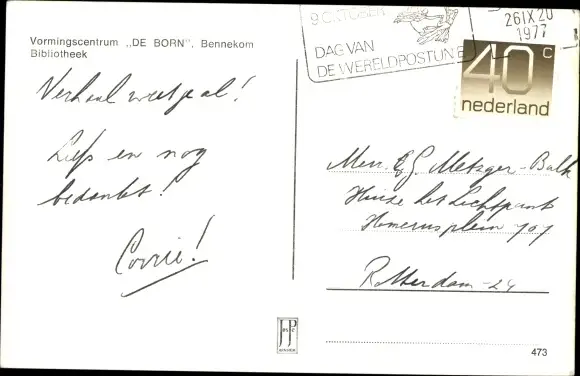 Vormingscentrum „DE BORN", Bennekom
Bibliotheek
Verhaal weet je al!
Liefs en nog
bedankt!
Corrie!
9 OKTOBER
DAG VAN
DE WERELDPOSTUNIE
26 IX 20
1977
40 c
nederland
Mevr. E.G. Metzger-Balk
Huize het Lichtpunt
Homerusplein 707
Rotterdam-24
JP
473